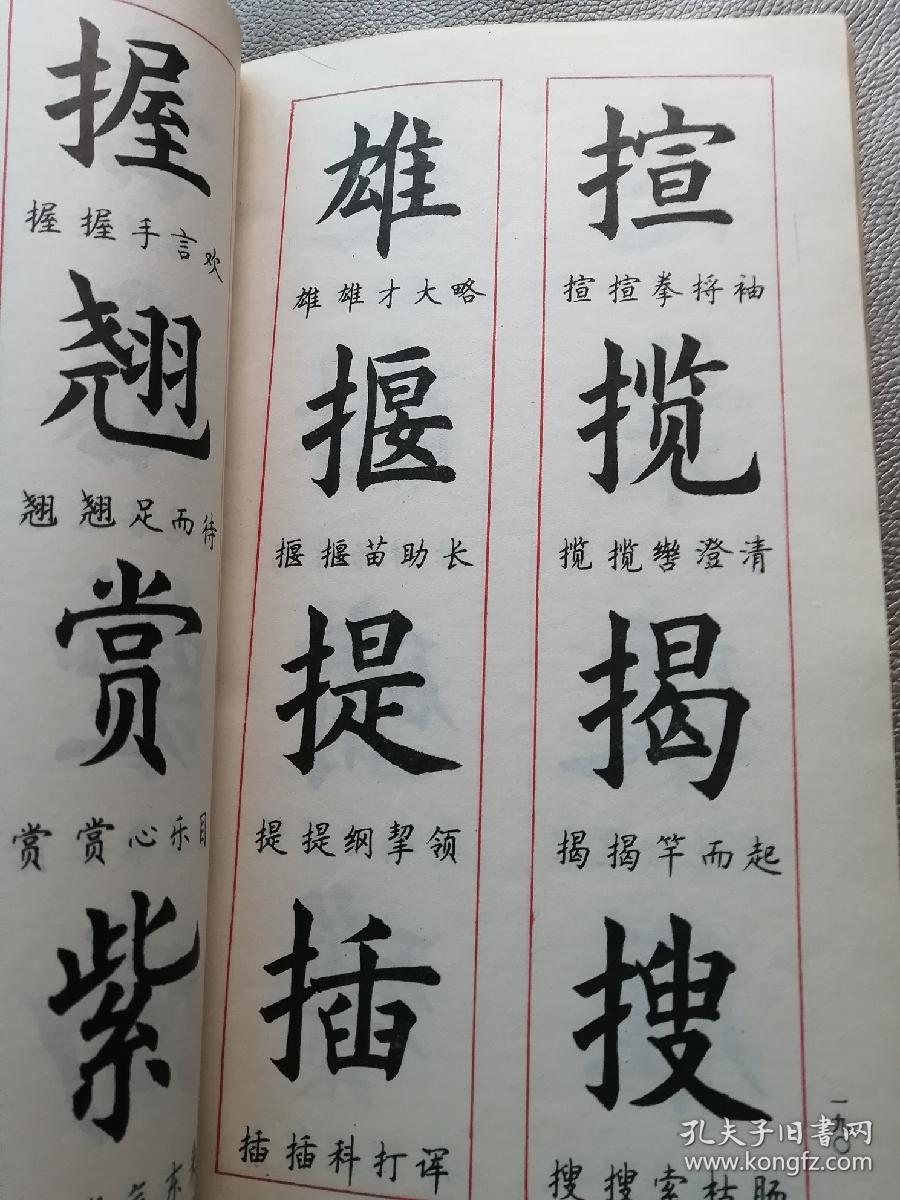 揎
揎 揎拳捋袖
揽
揽 揽辔澄清
揭
揭 揭竿而起
搜
搜 搜索枯肠
雄
雄 雄才大略
揠
揠 揠苗助长
提
提 提纲挈领
插
插 插科打诨
一九〇
握
握 握手言欢
翘
翘 翘足而待
赏
赏 赏心乐目
紫
孔夫子旧书网
www.kongfz.com